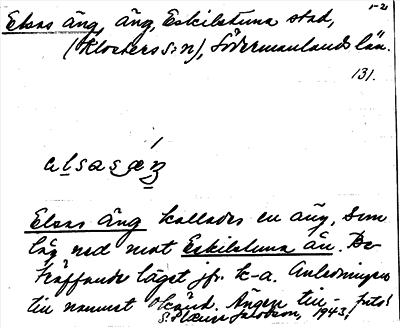 1-21
Elsas äng, äng, Eskilstuna stad,
(Klosters sn), Södermanlands län.
131.
Elsas Äng kallades en äng, som
låg ned mot Eskilstuna ån. Be-
träffande läget jfr k-a. Anledningen
till namnet okänd. Ängen till-
Jakobson, 1943.